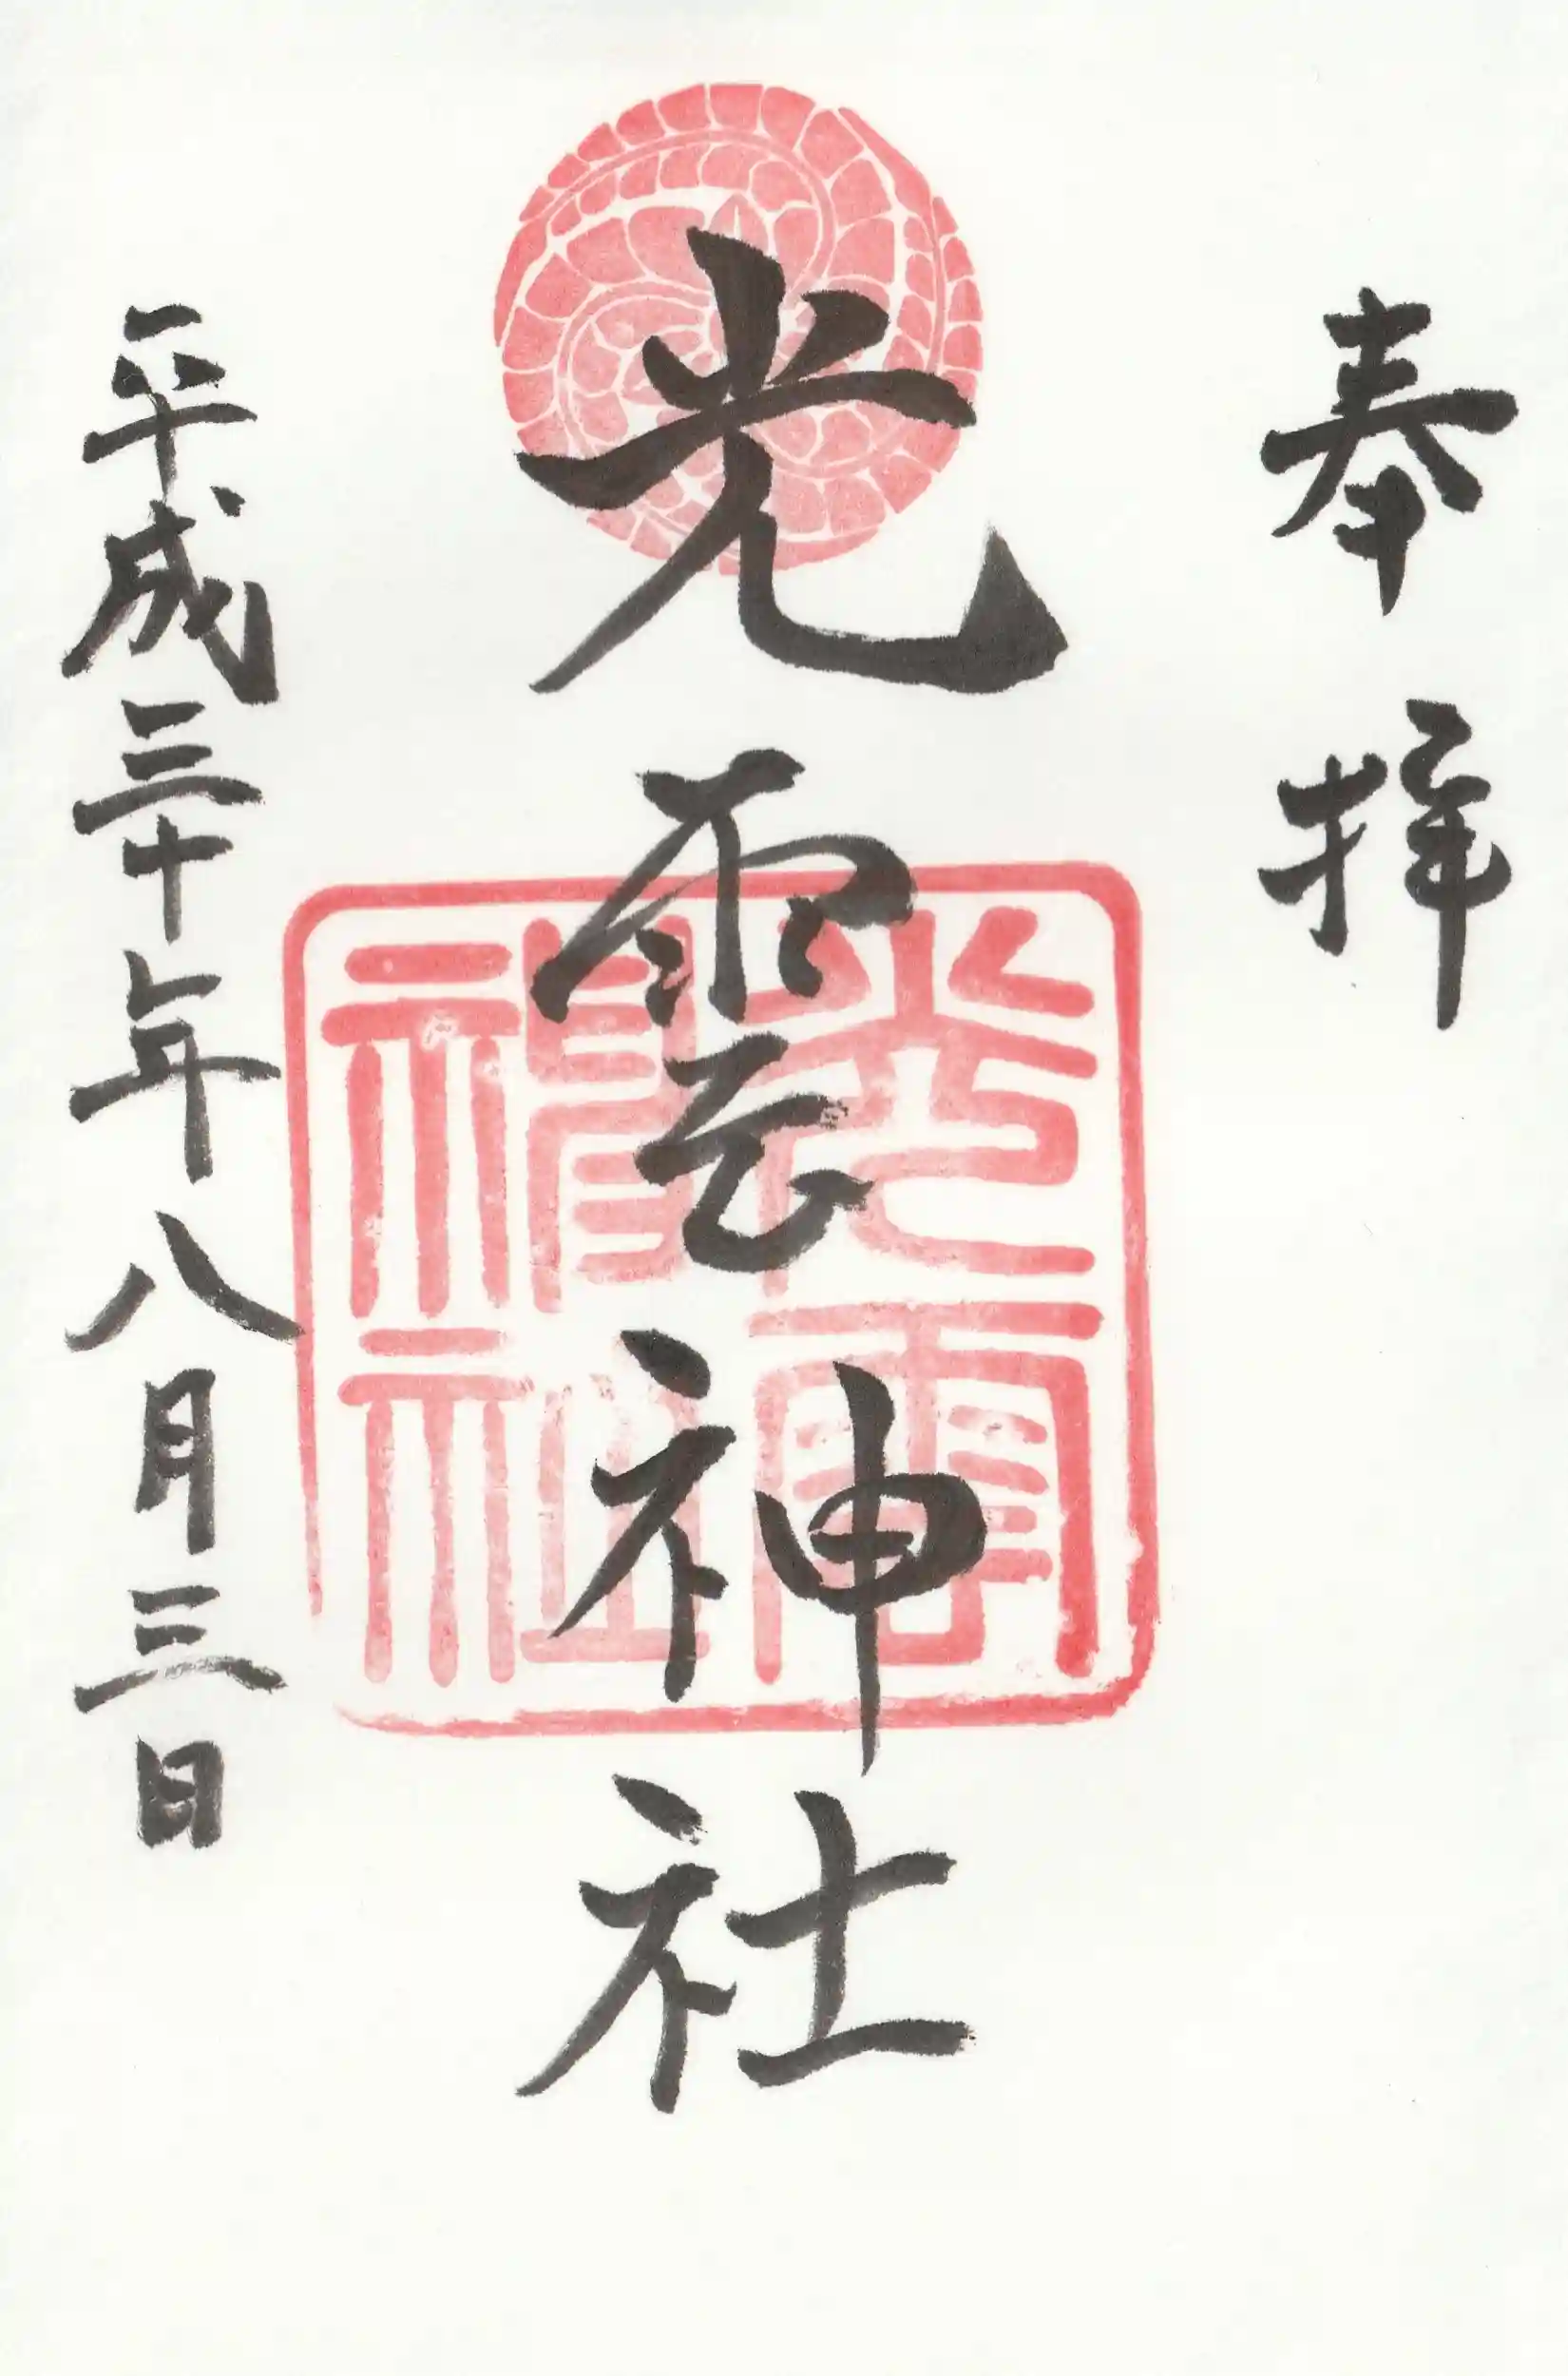 奉拝
光雲神社
光雲
神社
平成三十年八月三日